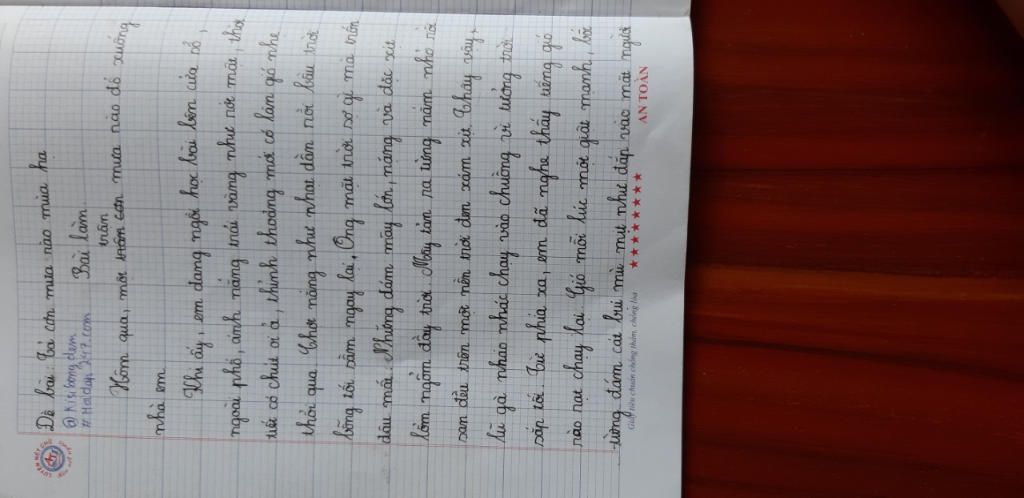 Đề bài: Tả cơn mưa rào mùa hạ
@Kisibongdem
#Hoidap247.com Bài làm.
Hôm qua, một trận mưa rào đổ xuống
nhà em.
Khi ấy, em đang ngồi học bài bên cửa sổ,
ngoài phố, ánh nắng trải vàng như rót mật, thời
tiết có chút oi ả, thỉnh thoảng mới có làn gió nhẹ
thổi qua. Chợt nắng như nhạt dần rồi bầu trời
bỗng tối sầm ngay lại. Ông mặt trời sợ gì mà trốn
đâu mất. Những đám mây lớn, nặng và đặc xịt
lổm ngổm đầy trời. Mây tản ra từng nắm nhỏ rồi
san đều trên một nền trời đen xám xịt. Thấy vậy,
lũ gà nháo nhác chạy vào chuồng vì tưởng trời
sắp tối. Từ phía xa, em đã nghe thấy tiếng gió
rào rạt chạy lại. Gió mỗi lúc một giật mạnh, bốc
từng đám cát bụi mù mịt như đắp vào mặt người
Giấy tiêu chuẩn chống thấm, chống lóa
★★★★★★★★★ AN TOÀN
LUYỆN NÉT CHỮ